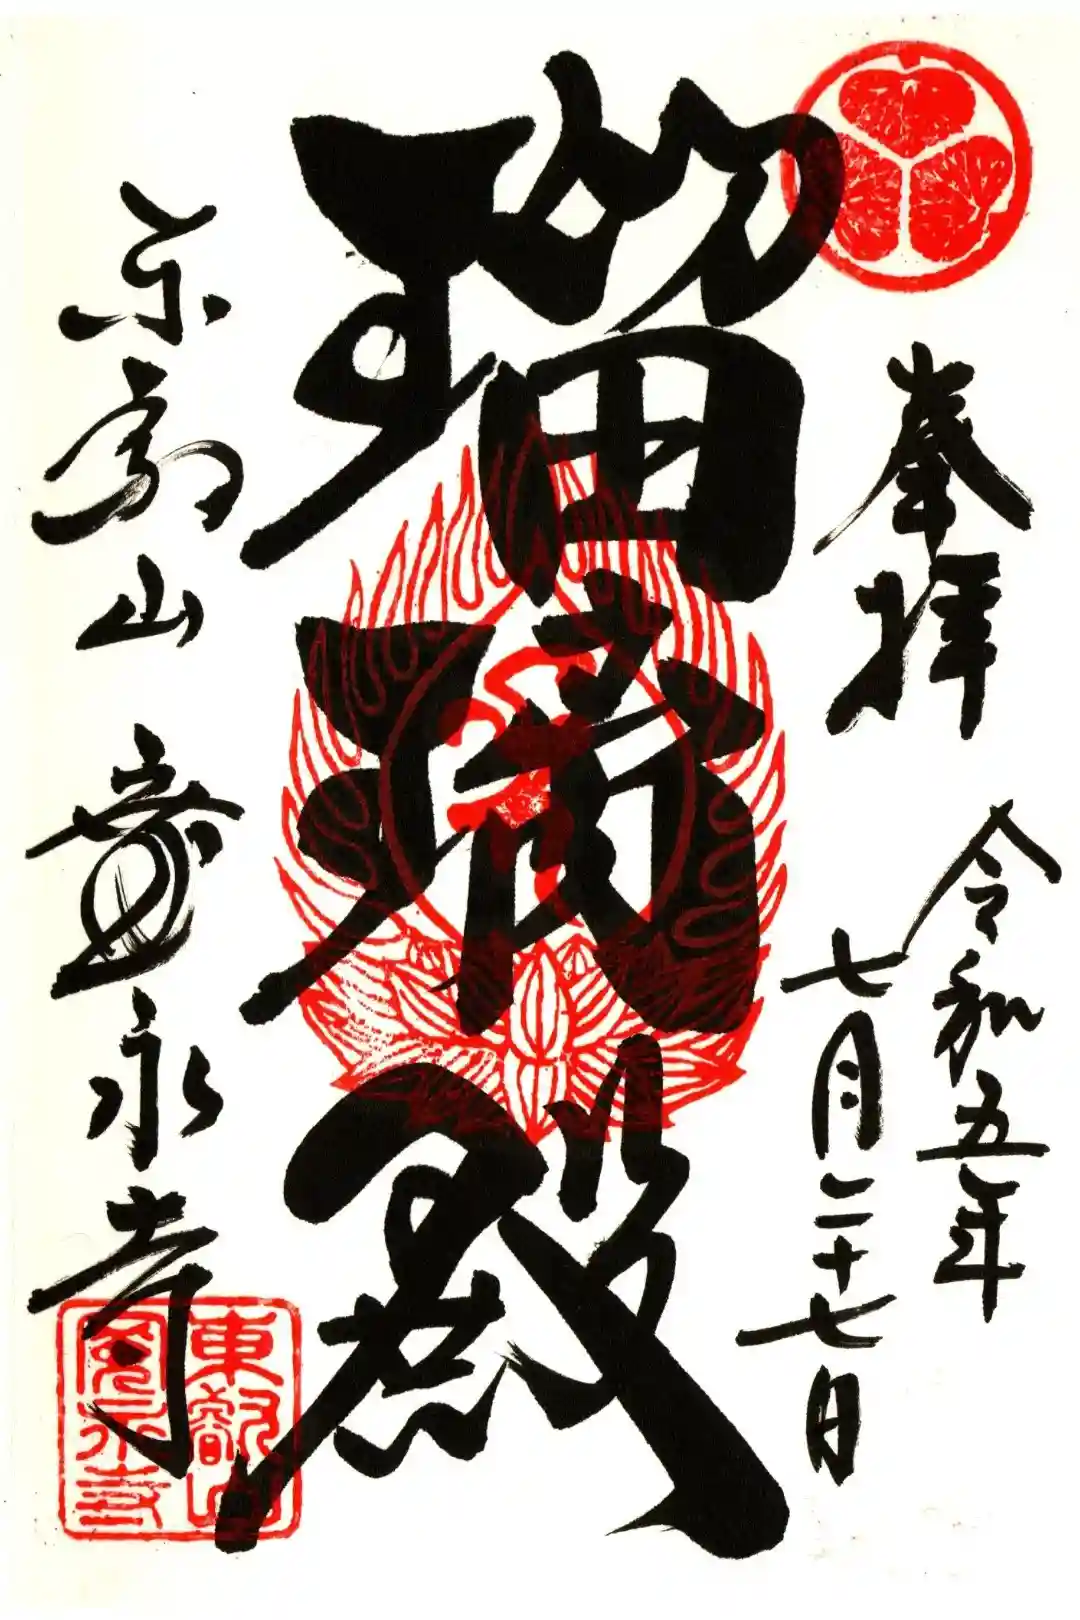 奉拝
令和五年
七月二十七日
瑠璃殿
東叡山 寛永寺
東叡山
寛永寺